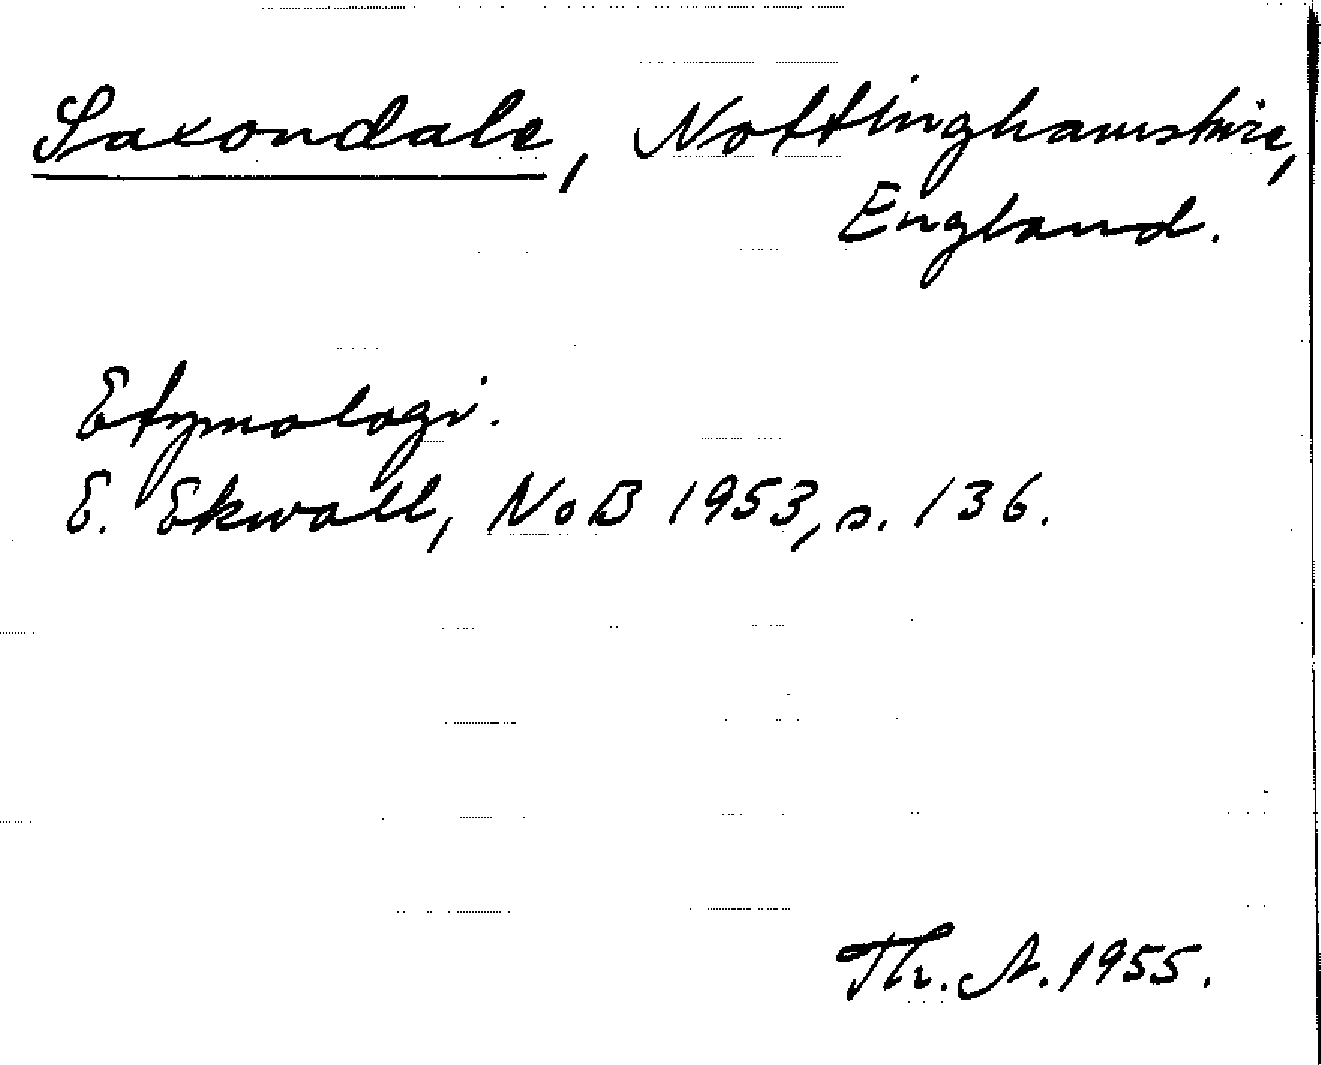 Saxondale, Nottinghamshire,
England.
Etymologi.
E. Ekwall, NoB 1953, s. 136.
Th. A. 1955.